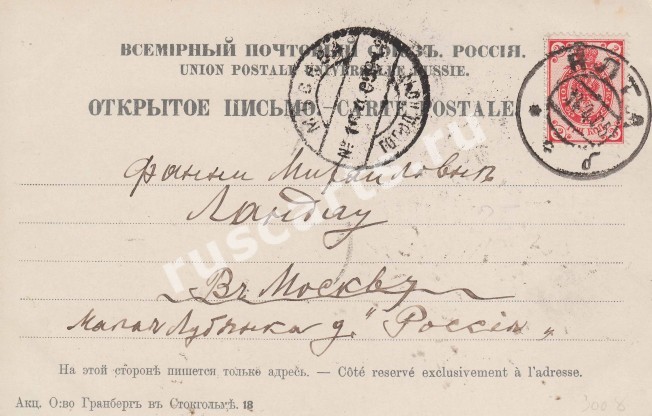 ВСЕМІРНЫЙ ПОЧТОВЫЙ СОЮЗЪ. РОССІЯ.
UNION POSTALE UNIVERSELLE. RUSSIE.
ОТКРЫТОЕ ПИСЬМО — CARTE POSTALE.
МОСКВА
ЯЛТА
Фанни Михайловнѣ
Ландау
Въ Москвѣ
Малая Лубянка д. "Россія"
На этой сторонѣ пишется только адресъ. — Côté reservé exclusivement à l'adresse.
Акц. О:во Гранбергъ въ Стокгольмѣ. 18
ruscarts.ru